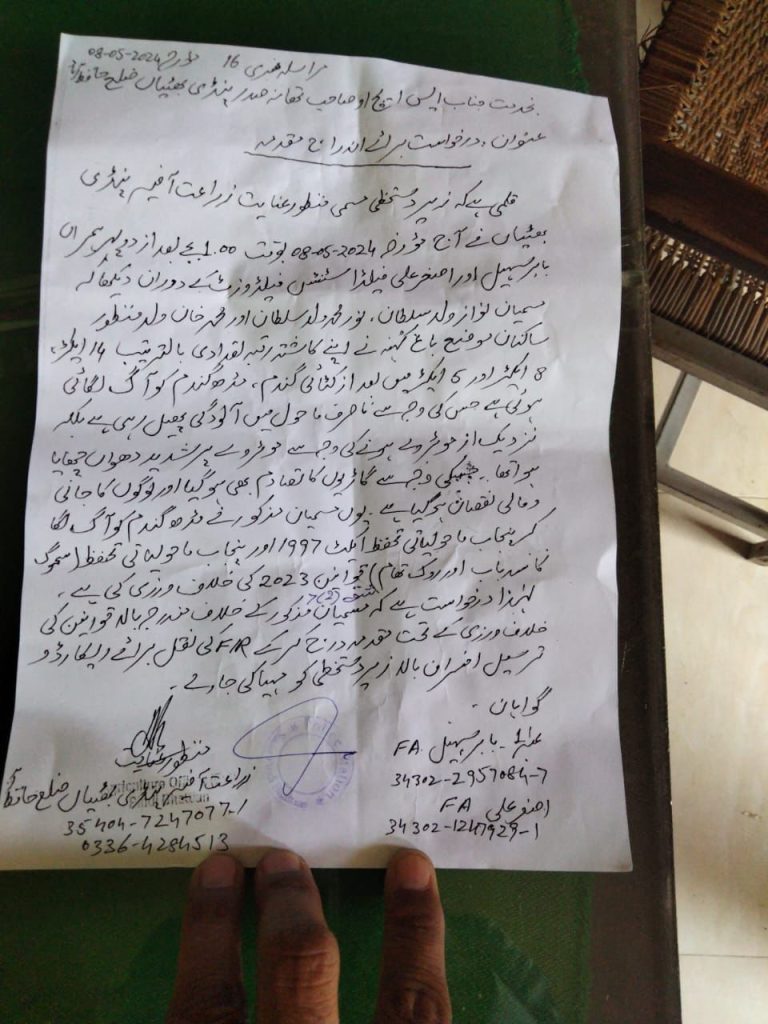 مراسلہ نمبری 16 مورخہ 08-05-2024
بخدمت جناب ایس ایچ او صاحب تھانہ صدر پنڈی بھٹیاں ضلع حافظ آباد
عنوان: درخواست برائے اندراج مقدمہ
قلمی ہے کہ زیر دستخطی مسمی منظور عنایت زراعت آفیسر پنڈی
بھٹیاں نے آج مورخہ 08-05-2024 بوقت 1.00 بجے بعد از دوپہر ہمراہ
بابر سہیل اور اصغر علی فیلڈ اسسٹنٹس فیلڈ وزٹ کے دوران دیکھا کہ
مسمیان نواز ولد سلطان، نور محمد ولد سلطان اور محمد خان ولد منظور
ساکنان موضع باغ کہنہ نے اپنے کاشتہ رقبہ تعدادی بالترتیب 14 ایکڑ،
8 ایکڑ اور 5 ایکڑ میں بعد از کٹائی گندم، مڈھ گندم کو آگ لگائی
ہوئی ہے جس کی وجہ سے نا صرف ماحول میں آلودگی پھیل رہی ہے بلکہ
نزدیک از موٹروے ہونے کی وجہ سے موٹروے پر شدید دھواں چھایا
ہوا تھا۔ جسکی وجہ سے گاڑیوں کا تصادم بھی ہو گیا اور لوگوں کا جانی
و مالی نقصان ہو گیا ہے۔ یوں مسمیان مذکور نے مڈھ گندم کو آگ لگا
کر پنجاب ماحولیاتی تحفظ ایکٹ 1997 اور پنجاب ماحولیاتی تحفظ (سموگ
کا سدباب اور روک تھام) قوانین 2023 کی خلاف ورزی کی ہے۔
شق (2)7
لہٰذا درخواست ہے کہ مسمیان مذکور کے خلاف مندرجہ بالا قوانین کی
خلاف ورزی کے تحت مقدمہ درج کر کے FIR کی نقل برائے ریکارڈ و
ترسیل افسران بالا زیر دستخطی کو مہیا کی جائے۔
گواہان۔
نمبر 1۔ بابر سہیل FA
34302-2957084-7
اصغر علی FA
34302-1247929-1
منظور عنایت
زراعت آفیسر پنڈی بھٹیاں ضلع حافظ آباد
35404-7247077-1
0336-4284513